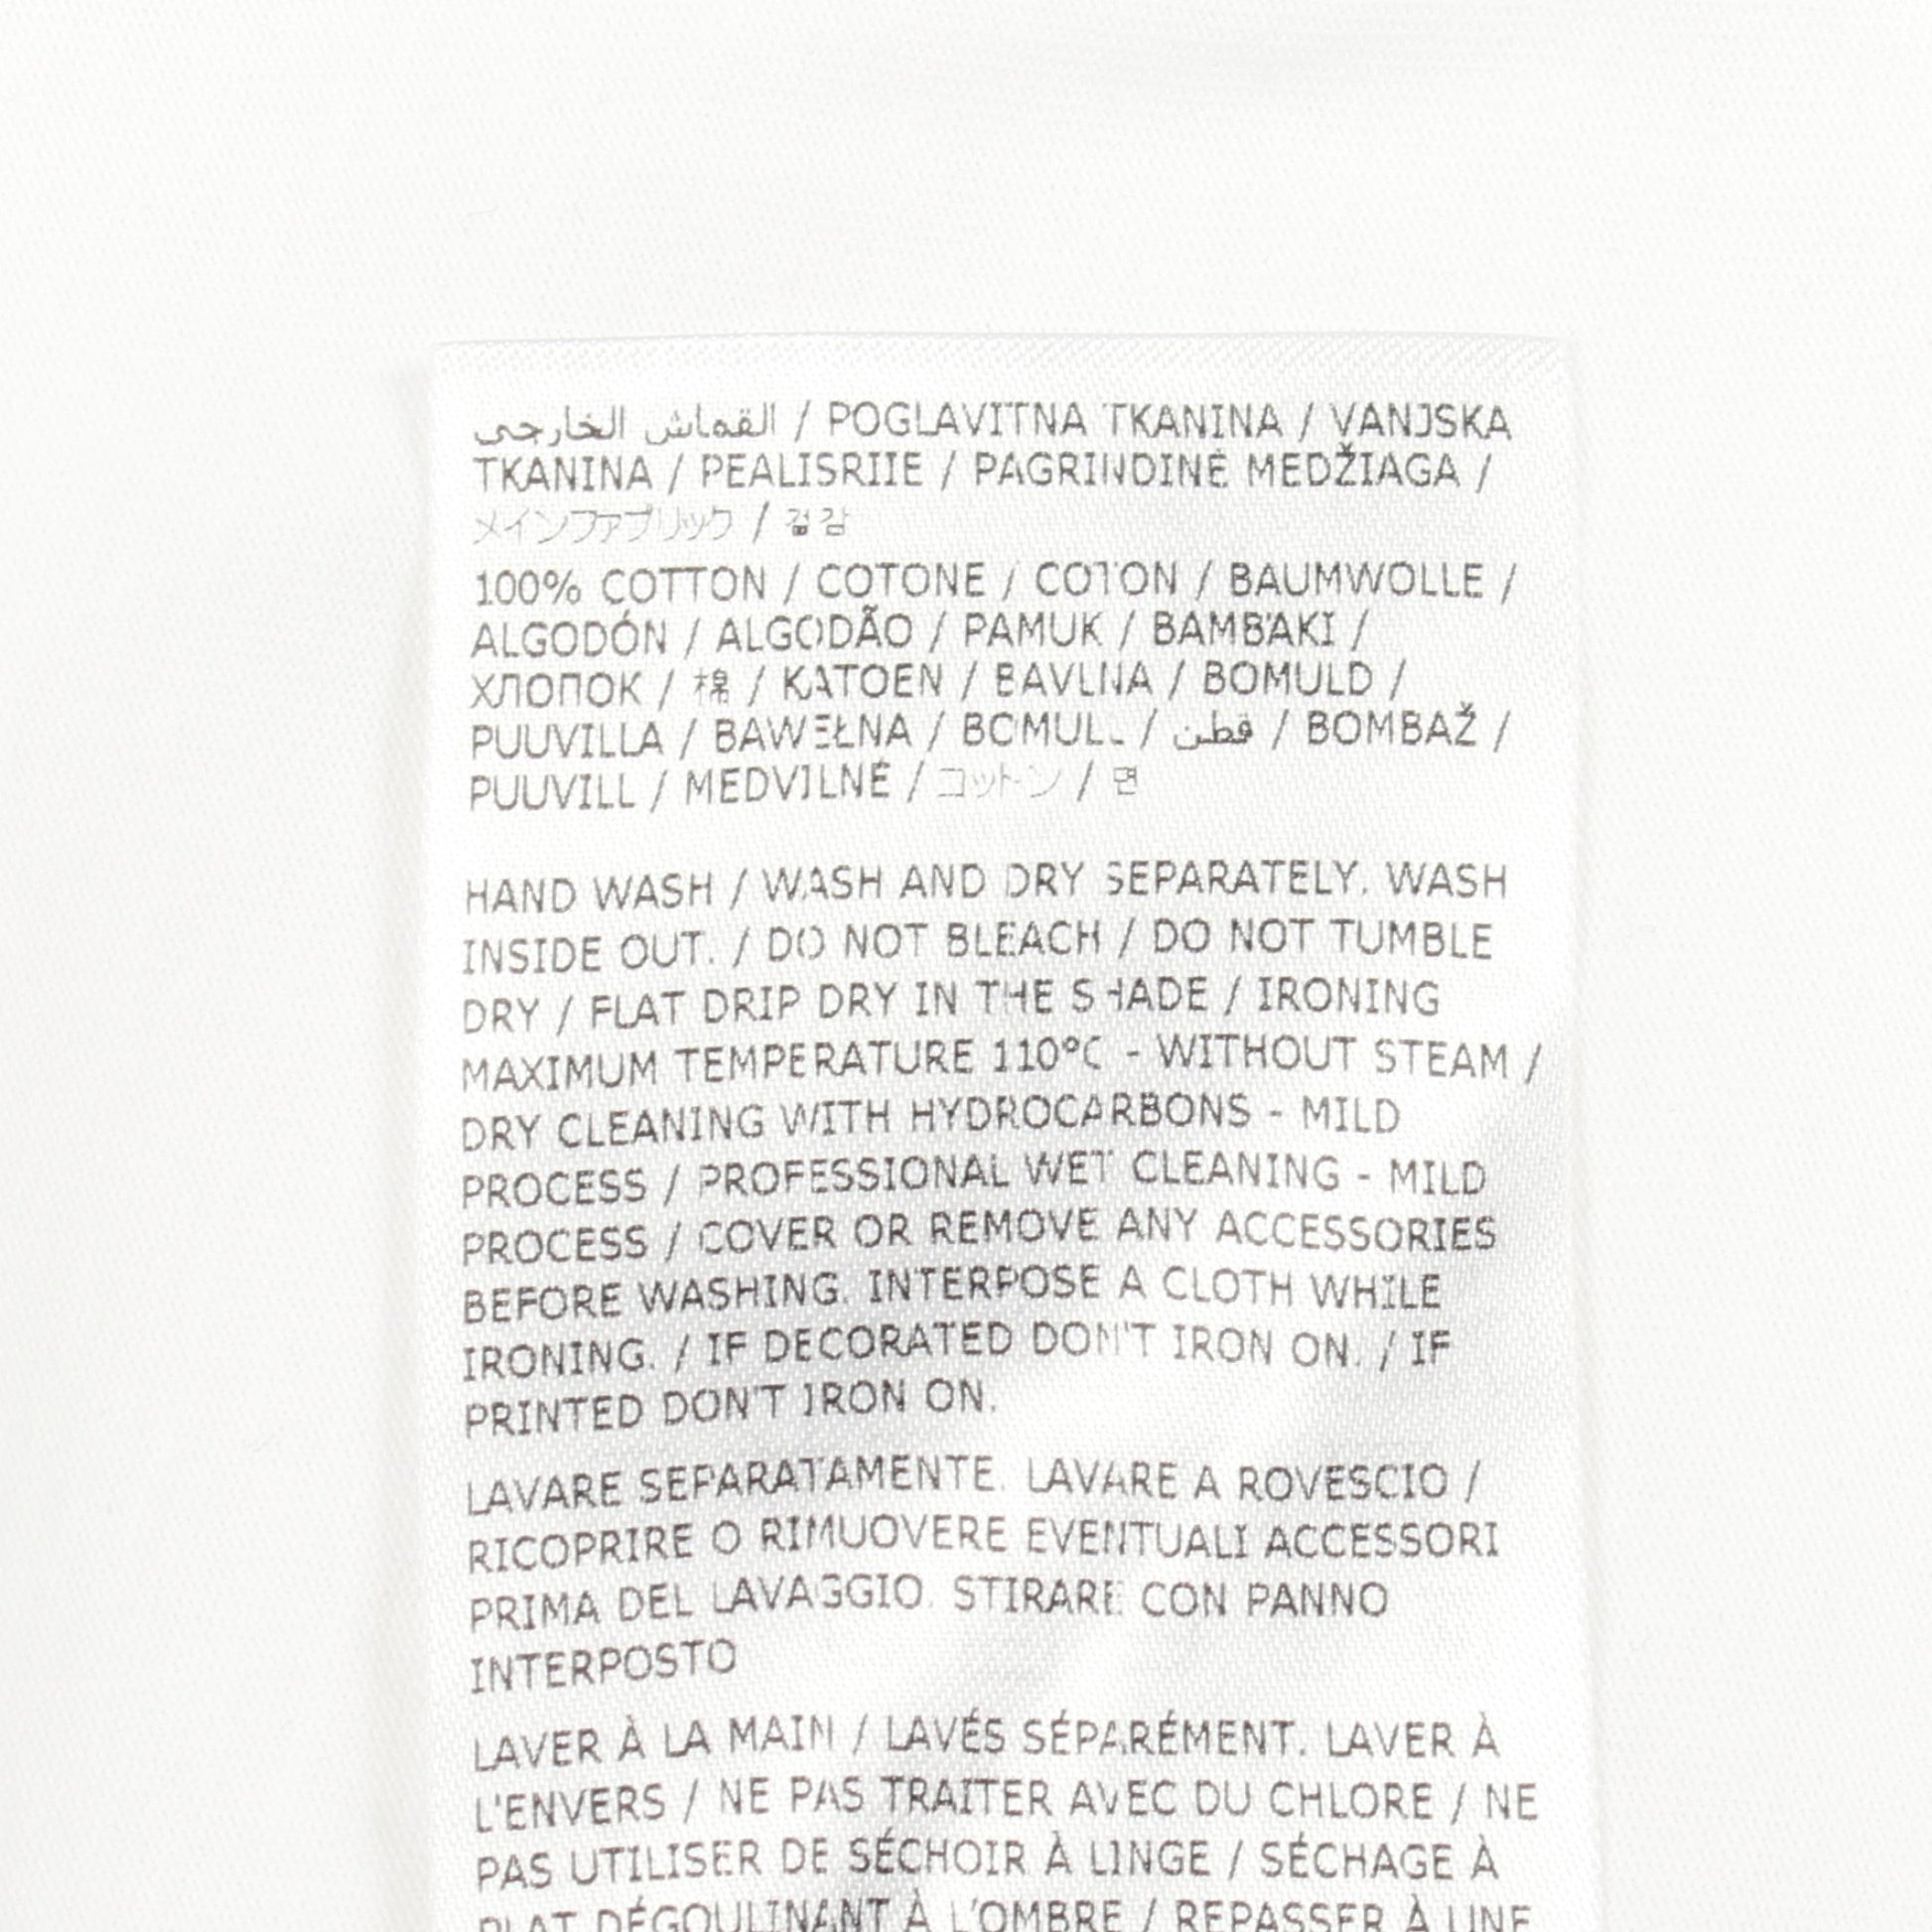 القماش الخارجي / POGLAVITNA TKANINA / VANJSKA
TKANINA / PEALISRIIE / PAGRINDINĖ MEDŽIAGA /
メインファブリック / 겉감
100% COTTON / COTONE / COTON / BAUMWOLLE /
ALGODÓN / ALGODÃO / PAMUK / ΒΑΜΒΆΚΙ /
ХЛОПОК / 棉 / KATOEN / BAVLNA / BOMULD /
PUUVILLA / BAWEŁNA / BOMULL / قطن / BOMBAŽ /
PUUVILL / MEDVILNĖ / コットン / 면
HAND WASH / WASH AND DRY SEPARATELY. WASH
INSIDE OUT. / DO NOT BLEACH / DO NOT TUMBLE
DRY / FLAT DRIP DRY IN THE SHADE / IRONING
MAXIMUM TEMPERATURE 110°C - WITHOUT STEAM /
DRY CLEANING WITH HYDROCARBONS - MILD
PROCESS / PROFESSIONAL WET CLEANING - MILD
PROCESS / COVER OR REMOVE ANY ACCESSORIES
BEFORE WASHING. INTERPOSE A CLOTH WHILE
IRONING. / IF DECORATED DON'T IRON ON. / IF
PRINTED DON'T IRON ON.
LAVARE SEPARATAMENTE. LAVARE A ROVESCIO /
RICOPRIRE O RIMUOVERE EVENTUALI ACCESSORI
PRIMA DEL LAVAGGIO. STIRARE CON PANNO
INTERPOSTO
LAVER À LA MAIN / LAVÉS SÉPARÉMENT. LAVER À
L'ENVERS / NE PAS TRAITER AVEC DU CHLORE / NE
PAS UTILISER DE SÉCHOIR À LINGE / SÉCHAGE À
PLAT DÉGOULINANT À L'OMBRE / REPASSER À UNE